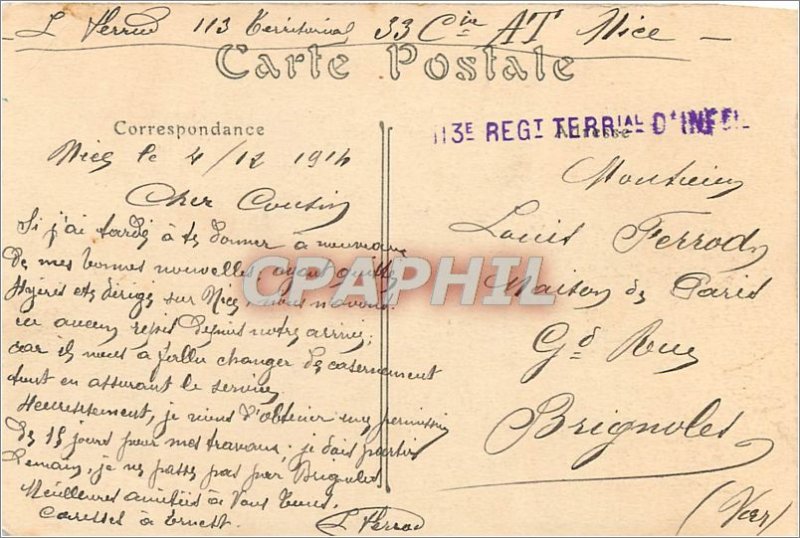 L Ferrod 113 Territorial 33 Cie AT Nice
Carte Postale
Correspondance
Adresse
113E REGT TERRIAL D'INFIE
Nice le 4/12 1914
Cher Cousin
Si j'ai tardé à te donner à nouveau
de mes bonnes nouvelles, ayant quitté
Hyères et dirigé sur Nice, nous n'avons
eu aucun repos depuis notre arrivée,
car il nous a fallu changer de casernement
tout en assurant le service,
Heureusement, je viens d'obtenir une permission
de 15 jours pour mes travaux; je dois partir
demain, je ne passe pas par Brignoles
Meilleures amitiés à Vous tous,
Caresses à Ernest.
L Ferrod
Monsieur
Louis Ferrod
Maison de Paris
Gde Rue
Brignoles
(Var)
CPAPHIL